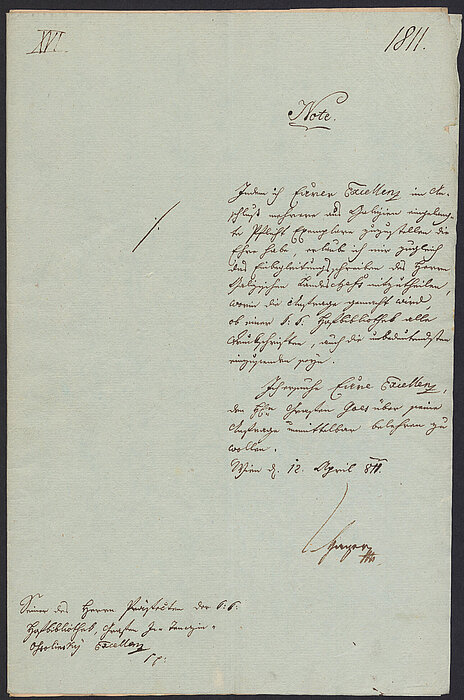 XVI.
1811.
Note.
./.
Indem ich Eurer Excellenz im An-
schluß mehrere aus Galizien eingelang-
te Pflicht Exemplare zuzustellen die
Ehre habe, erlaube ich mir zugleich
das Einbegleitungsschreiben des Herrn
Galizischen Landeschefs mitzutheilen,
worin die Anfrage gemacht wird
ob einer k: k: Hofbibliothek alle
Druckschriften, auch die unbedeutendsten
einzusenden seyn.
Ich ersuche Euere Excellenz,
den Hrn Grafen Goes über seine
Anfrage unmittelbar belehren zu
wollen.
Wien d. 12. April 811.
Hager
Seiner des Herrn Präfekten der k: k:
Hofbibliothek, Grafen
Ossolinsky Excellenz